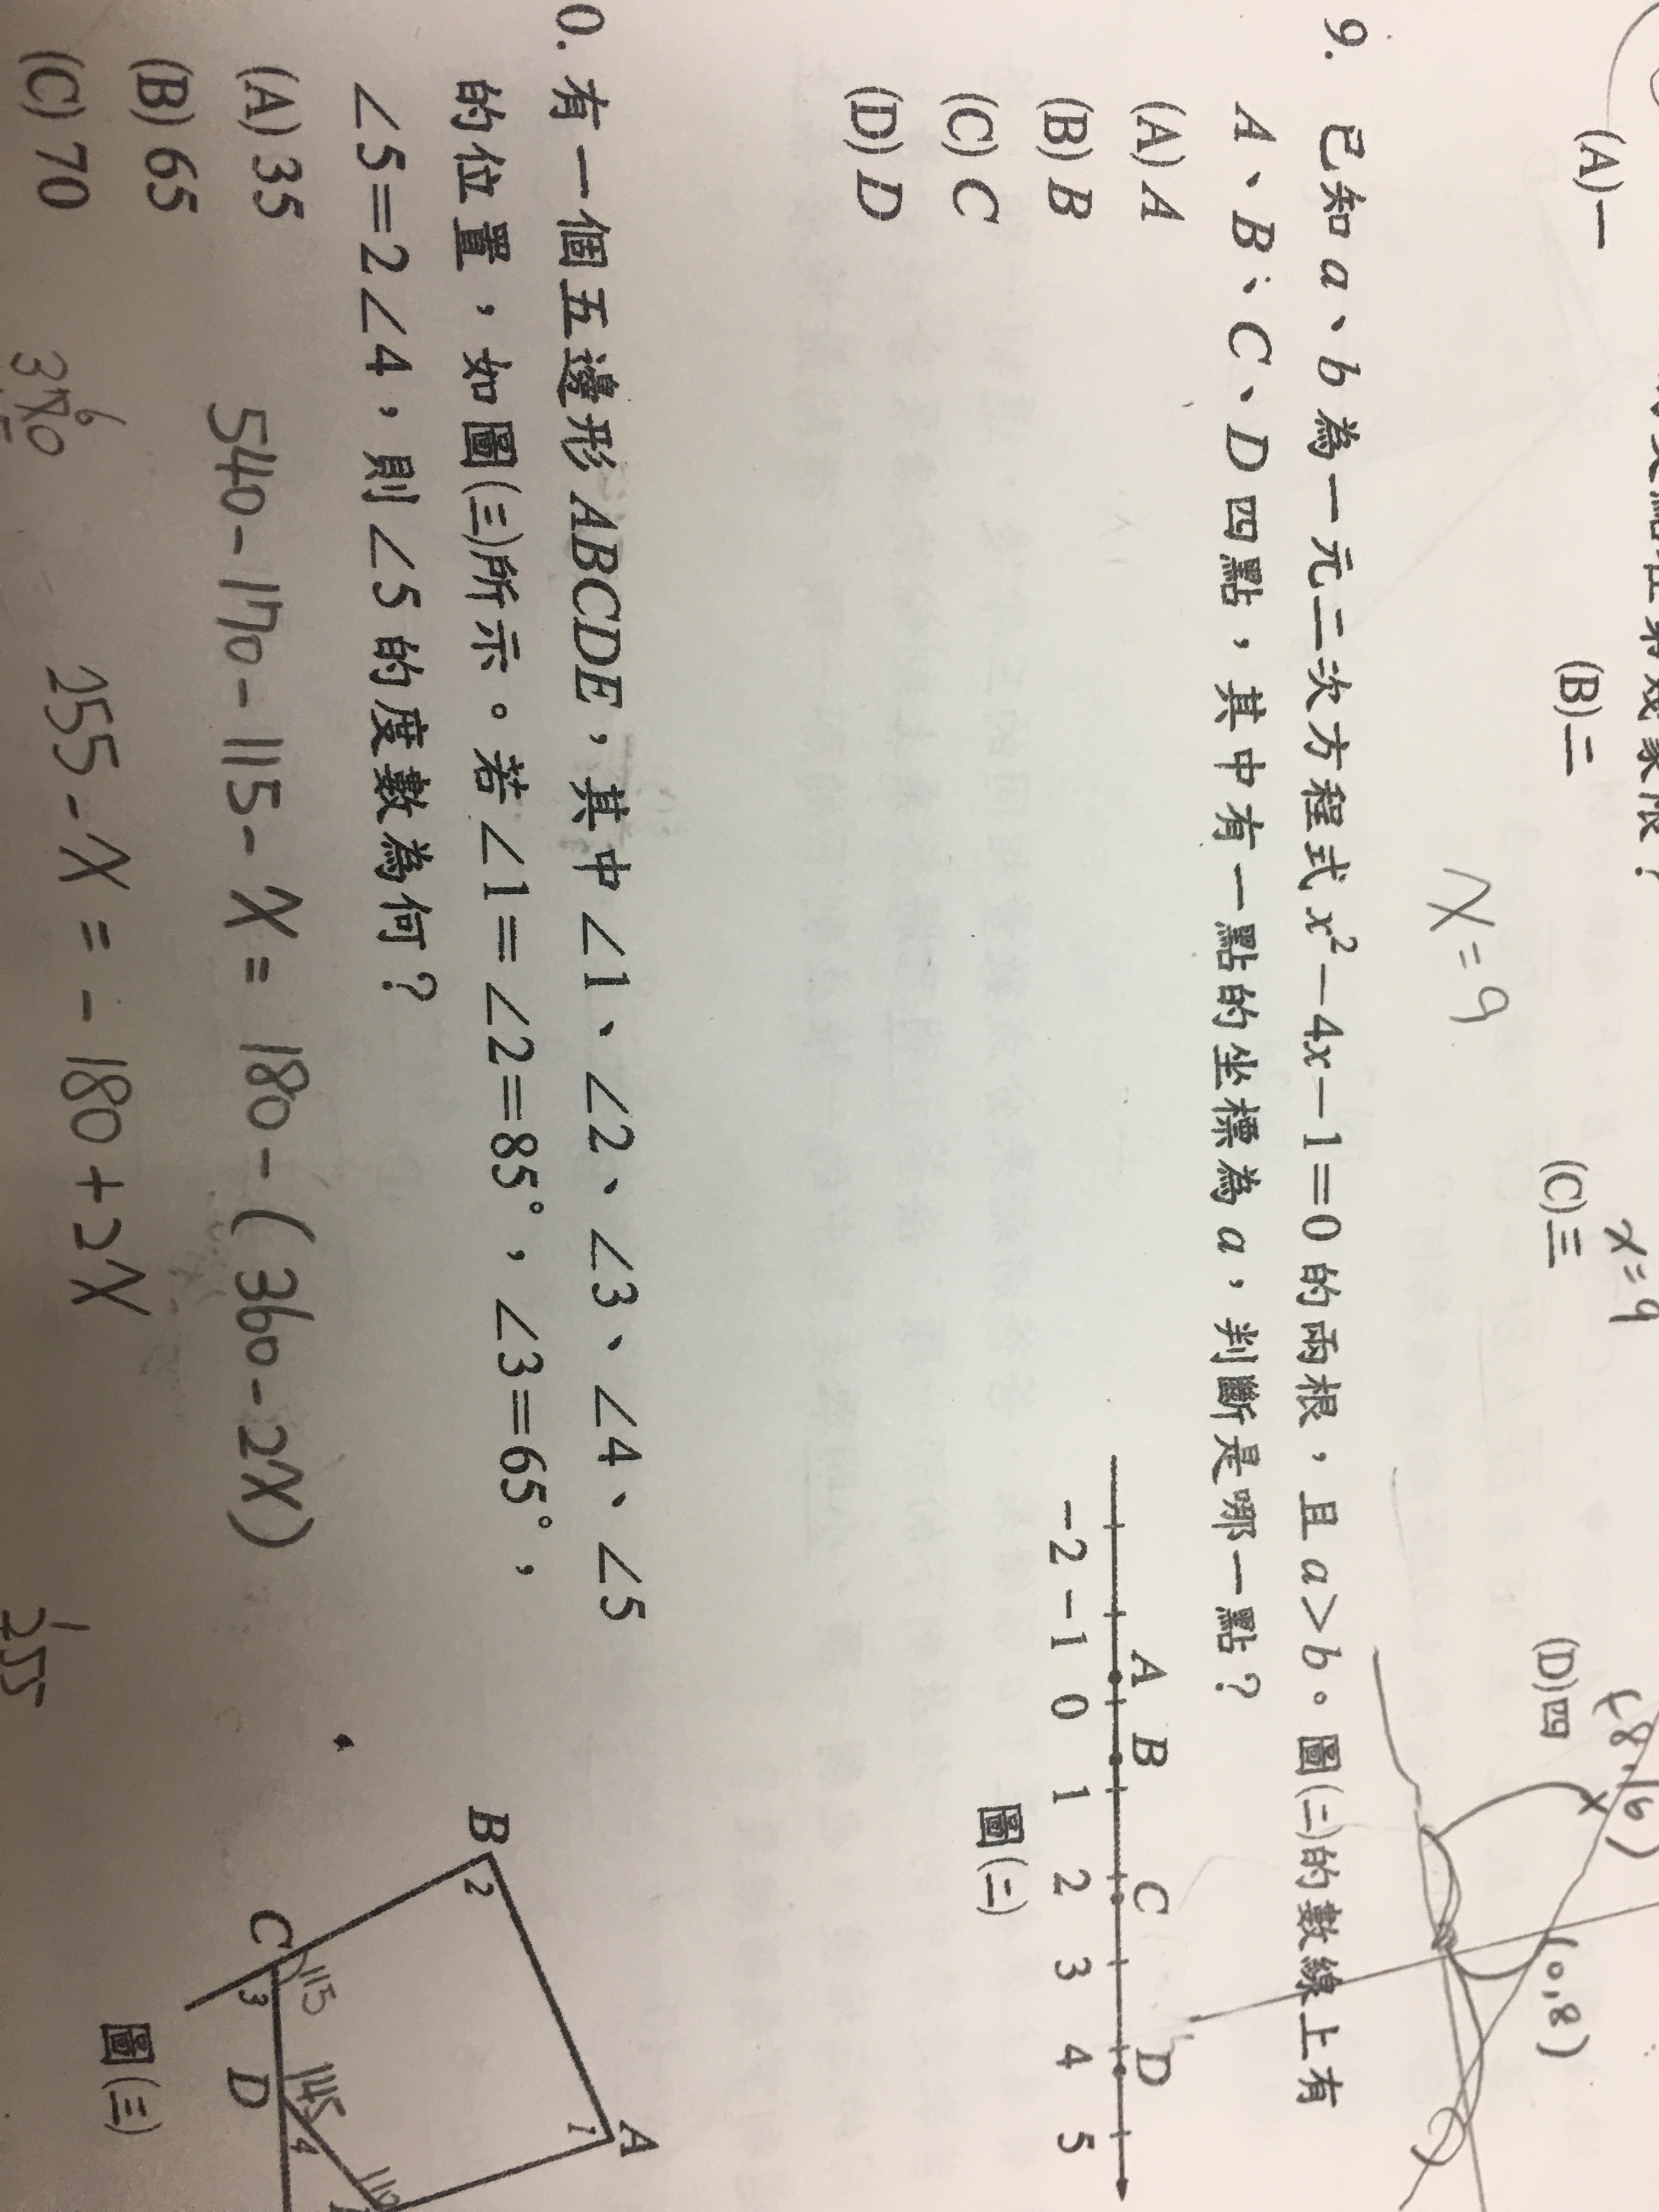 (A)一 (B)二 (C)三 (D)四
x=9
x=9
(0,8)
9. 已知 a、b 為一元二次方程式 x²－4x－1＝0 的兩根，且 a＞b。圖(二)的數線上有
A、B、C、D 四點，其中有一點的坐標為 a，判斷是哪一點？
(A) A
(B) B
(C) C
(D) D
A B C D
－2 －1 0 1 2 3 4 5
圖(二)
0. 有一個五邊形 ABCDE，其中 ∠1、∠2、∠3、∠4、∠5
的位置，如圖(三)所示。若 ∠1＝∠2＝85°，∠3＝65°，
∠5＝2∠4，則 ∠5 的度數為何？
(A) 35
(B) 65
(C) 70
540-170-115-x = 180-(360-2x)
255-x = -180+2x
255
A
1
B
2
C
115
3
D
145
4
圖(三)